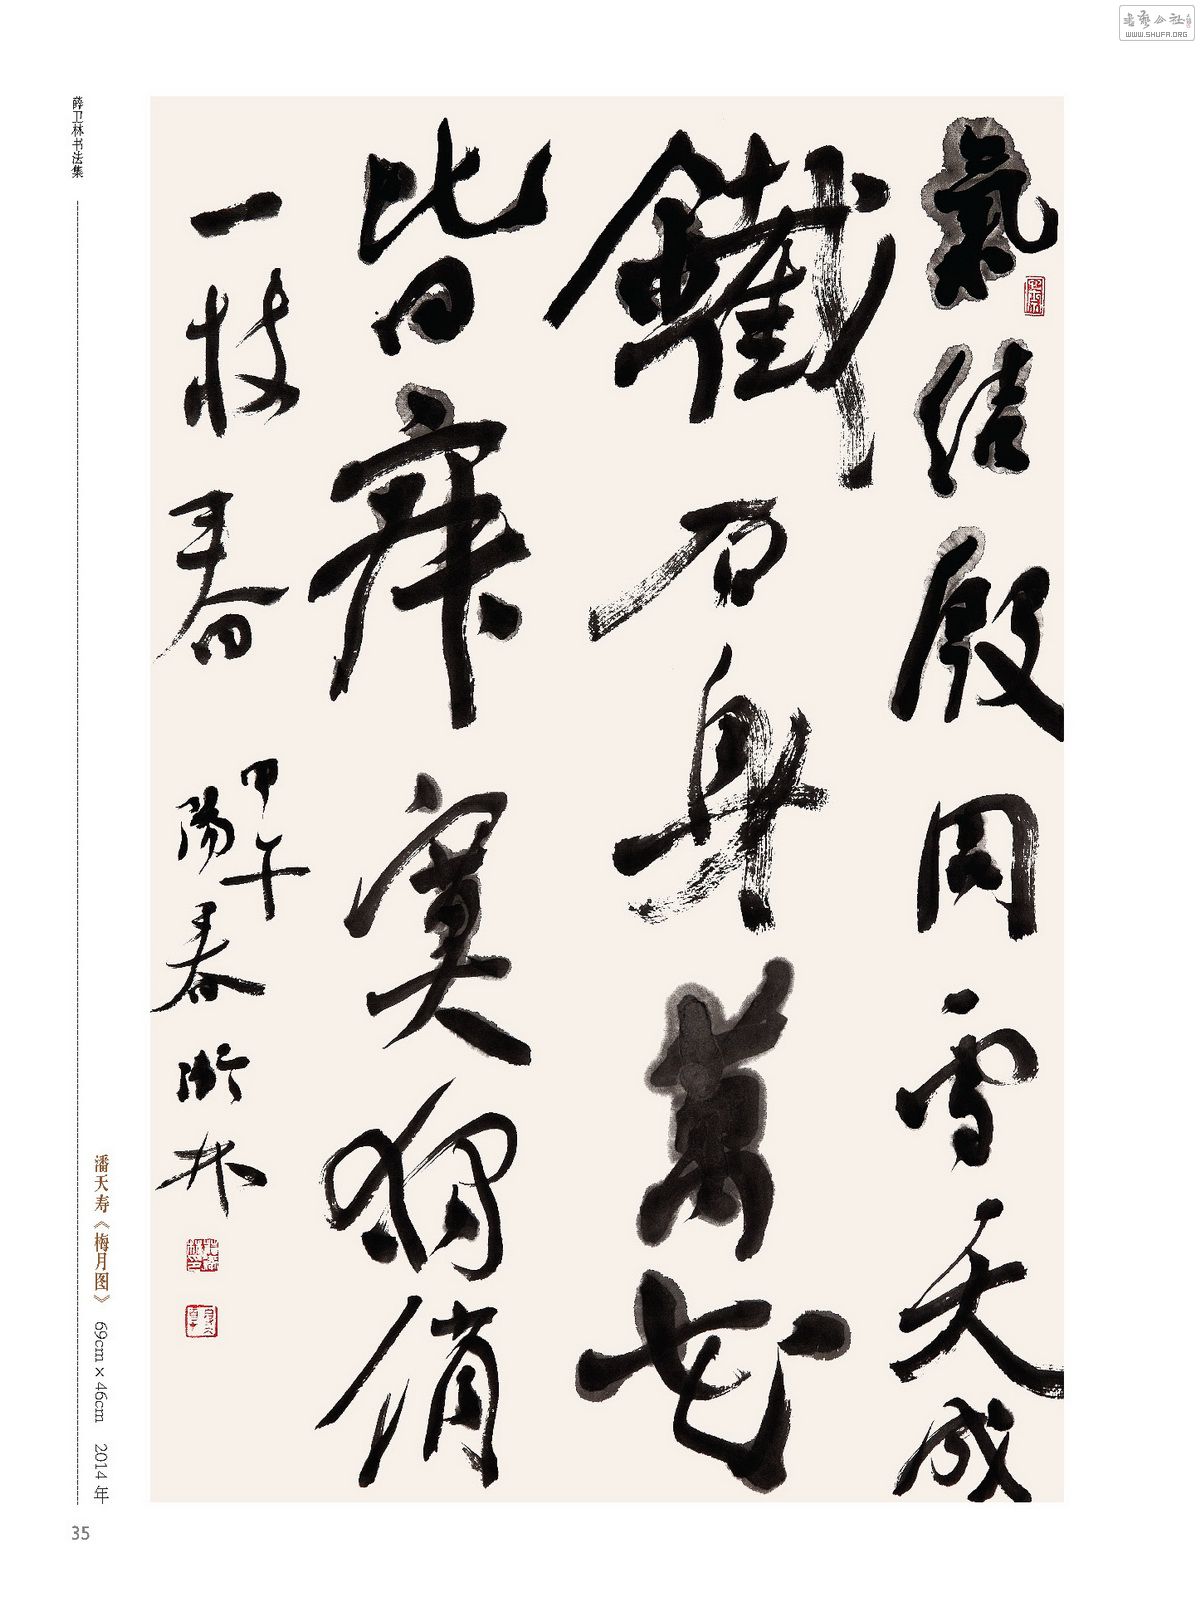 書藝公社
WWW.SHUFA.ORG
氣結殷周雪天成
鐵石身萬花
皆寂寞獨俏
一枝春
甲午
陽春衛林
薛卫林书法集
潘天寿《梅月图》 69cm×46cm 2014年
35